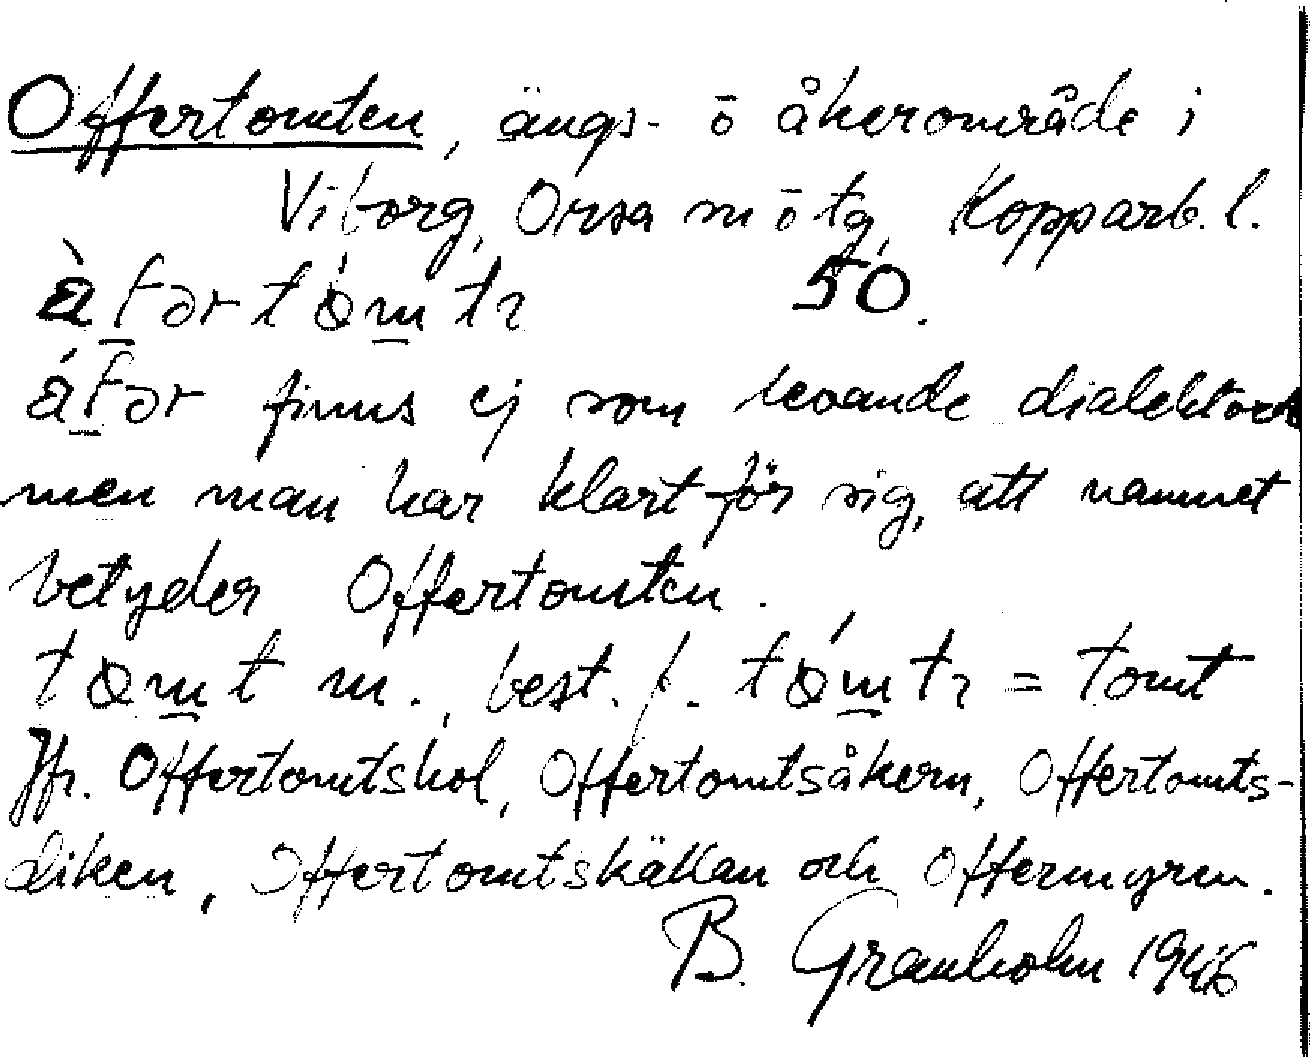 Offertomten, ängs- ō åkerområde i
Viborg, Orsa sn ō tg, Kopparb. l.
50.
finns ej som levande dialektord
men man har klart för sig, att namnet
betyder Offertomten.
m., best. f. = tomt
Jfr. Offertomtshol, Offertomtsåkern, Offertomts-
diken, Offertomtskällan och Offermyren.
B. Granholm 1946